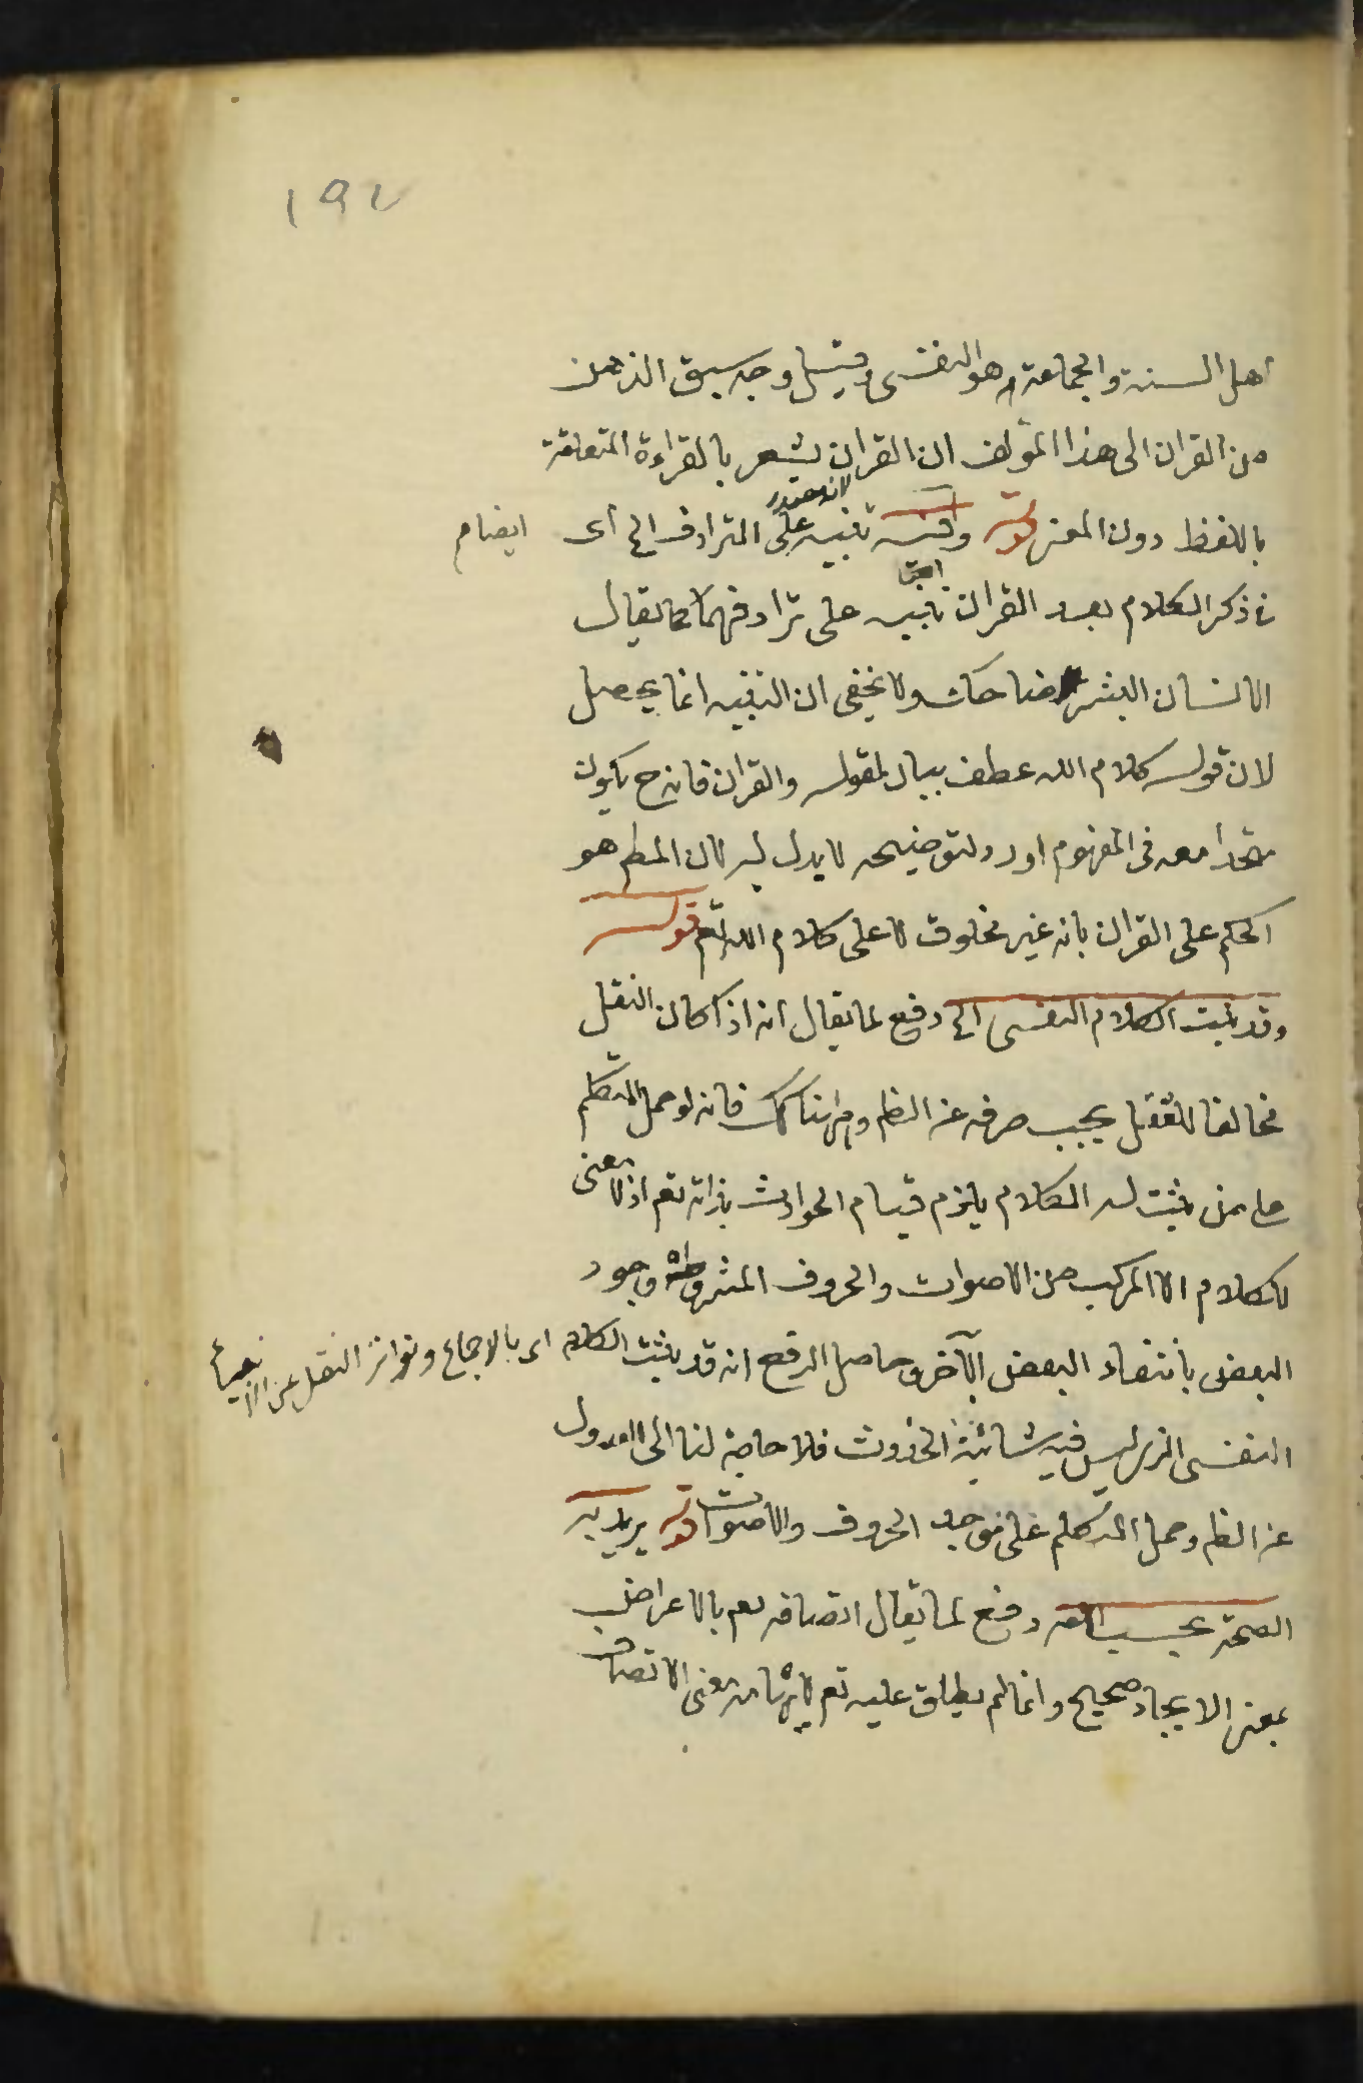 ١٩٧
اهل السنة والجماعة وهو النفسى وقيل وجه سبق الذهن
من القران الى هذا المؤلف ان القران يشعر بالقراءة المتعلقة
باللفظ دون المعنى قوله تنبيه على الترادف الخ اى ايضا م
ذكر الكلام بعد القران تنبيه على ترادفهما كما يقال
الانسان البشر ضاحك ولا يخفى ان التنبيه انما يحصل
لان قوله كلام الله عطف بيان لقوله والقران فانه ح يكون
متحدا معه فى المفهوم اورد لتوضيحه لا بدل له لان المط هو
الحكم على القران بانه غير مخلوق لا على كلام الله تع قوله
وقد ثبت الكلام النفسى الخ دفع لما يقال انه اذا كان النقل
مخالفا للعقل يجب صرفه عن الظ وههنا كك فانه لو حمل المتكلم
على من يثبت له الكلام يلزم قيام الحوادث بذاته تع اذ لا معنى
للكلام الا المركب من الاصوات والحروف المشروطة وجود
البعض بانتفاء البعض الآخر وحاصل الدفع انه قد يثبت الكلام اى بالاجماع وتواتر النقل عن الانبياء
النفسى الذى ليس فيه شائبة الحدوث فلا حاجة لنا الى العدول
عن الظ وحمل المتكلم على موجد الحروف والاصوات قوله يريد به
الصحة بحسب اللغة دفع لما يقال اتصافه تع بالاعراض
بمعنى الايجاد صحيح وانما لم يطلق عليه تع معنى الاتصاف